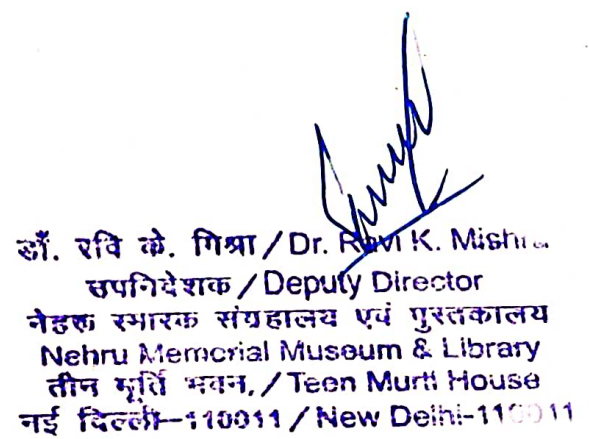 डॉ. रवि के. मिश्रा / Dr. Ravi K. Mishra
उपनिदेशक / Deputy Director
नेहरू स्मारक संग्रहालय एवं पुस्तकालय
Nehru Memorial Museum & Library
तीन मूर्ति भवन, / Teen Murti House
नई दिल्ली–110011 / New Delhi-110011